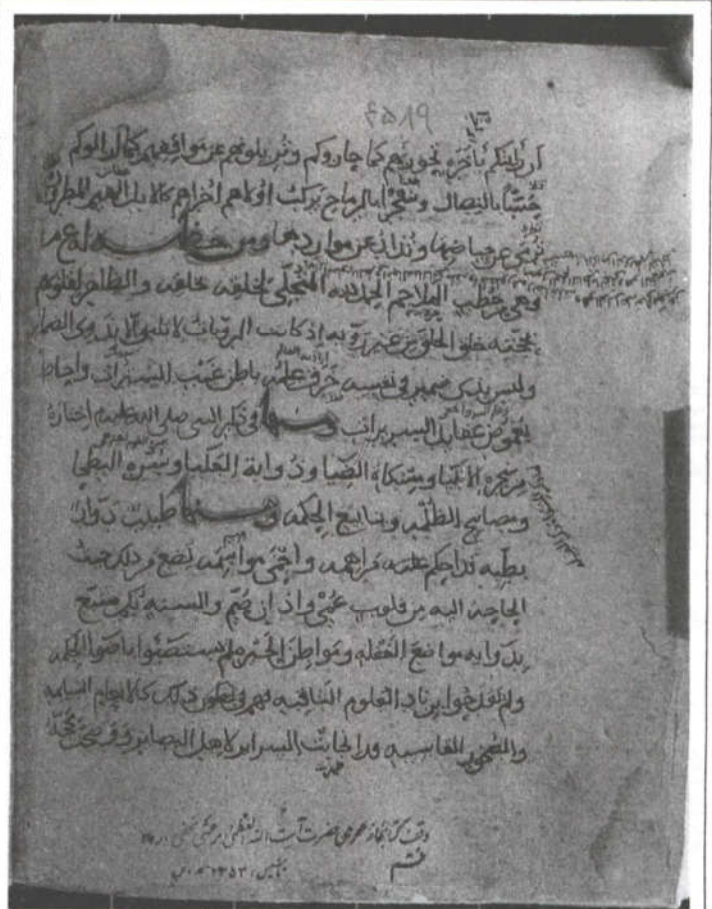 ۶۵۱۹
ان رايتكم باخره تحوزونهم كما حازوكم وتزيلونهم عن مواقفهم كما ازالوكم
حسا بالنصال وشجرا بالرماح تركب اولاهم اخراهم كالابل الهيم المطروده
ترمى عن حياضها وتذاد عن مواردها ومن خطبه له ع م
وهى من خطب الملاحم الحمد لله المتجلى لخلقه بخلقه والظاهر لقلوبهم
بحجته خلق الخلق من غير رويه اذ كانت الرويات لا تليق الا بذوى الضماير
وليس بذى ضمير فى نفسه خرق علمه باطن غيب السترات واحاط
بغموض عقايد السريرات ومنها فى ذكر النبى صلى الله عليه اختاره
من شجره الانبيا ومشكاه الضيا وذوابة العليا وسره البطحا
ومصابيح الظلمه وينابيع الحكمه ومنها طبيب دوار
بطبه قد احكم مراهمه واحمى مواسمه يضع من ذلك حيث
الحاجه اليه من قلوب عمى واذان صم والسنه بكم متبع
بدوايه مواضع الغفله ومواطن الحيره لم يستضيوا باضوا الحكمه
ولم يقدحوا بزناد العلوم الثاقبه فهم فى ذلك كالانعام السايمه
والصخور القاسيه قد انجابت السراير لاهل البصاير ووضحت محجه
وقف کتابخانه عمومی حضرت آیت الله العظمی مرعشی نجفی
قم
تأسیس ۱۳۵۳